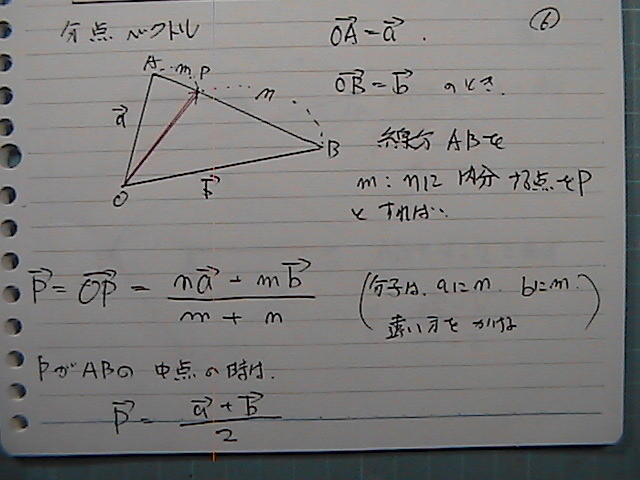 分点ベクトル
⑥
OA→ = a→.
OB→ = b→ のとき.
A m P n
a→
B
O
b→
線分ABを
m:nに内分する点をP
とすれば、
p→ = OP→ = (na→ + mb→) / (m + n)
(分子は、aにn bにm
遠い方をかける)
PがABの中点の時は.
p→ = (a→ + b→) / 2